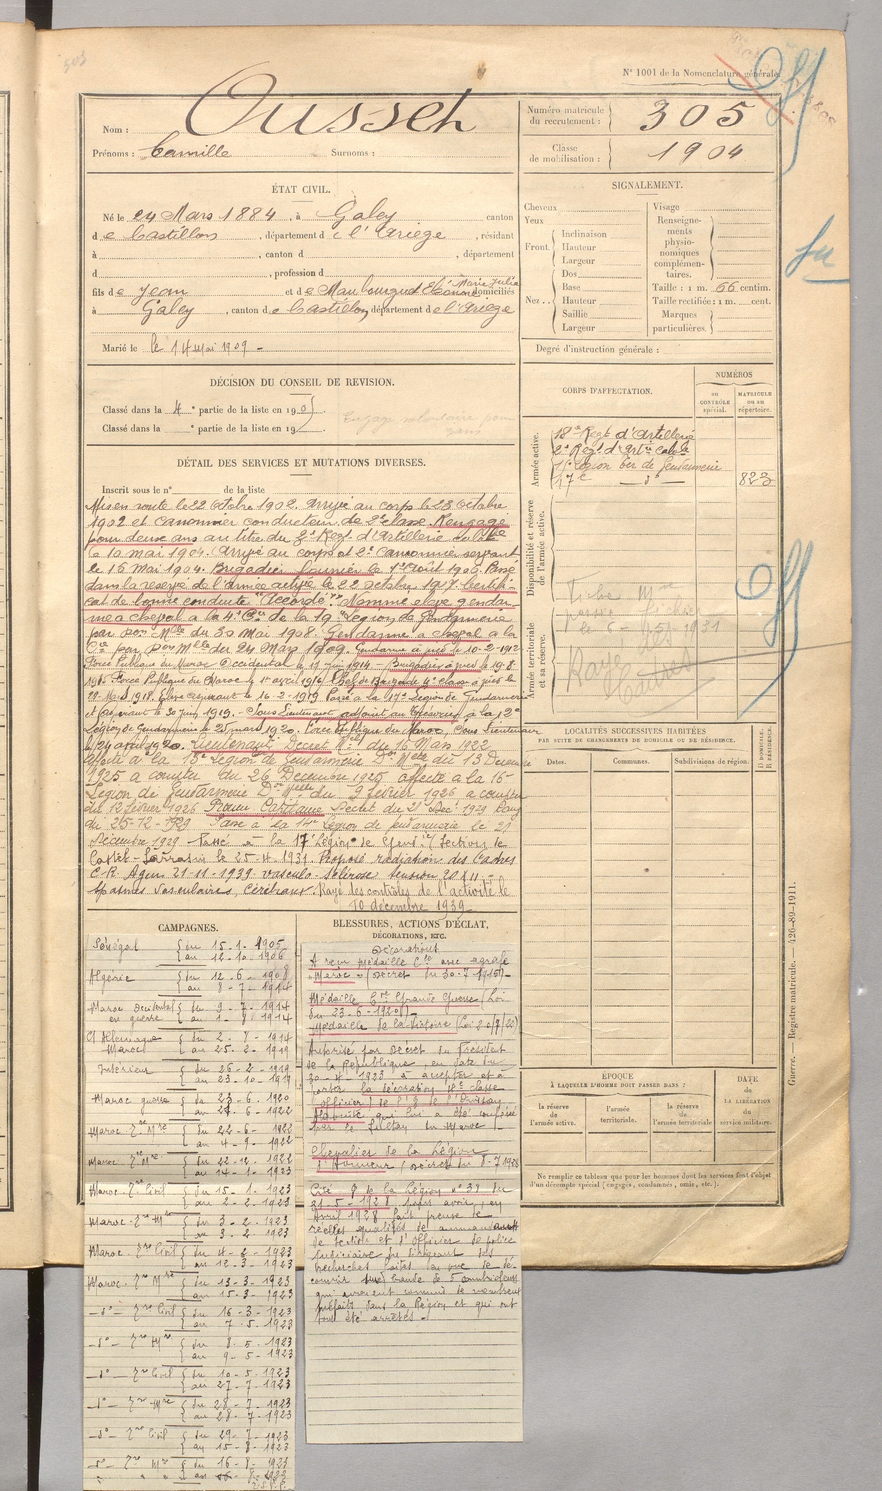 N° 1001 de la Nomenclature générale.
Off
Nom : Ousset
Prénoms : Camille Surnoms :
Numéro matricule du recrutement : 305
Classe de mobilisation : 1904
ÉTAT CIVIL.
Né le 24 Mars 1884, à Galey canton
de Castillon, département de l'Ariège, résidant
à , canton d , département
d , profession d
fils de Jean et de Marie Julie domiciliés
à Galey, canton de Castillon, département de l'Ariège
Marié le 14 Mai 1909 -
SIGNALEMENT.
Cheveux
Yeux
Front. Inclinaison
Hauteur
Largeur
Nez.. Dos
Base
Hauteur
Saillie
Largeur
Visage
Renseignements physionomiques complémentaires.
Taille : 1 m. 66 centim.
Taille rectifiée : 1 m. cent.
Marques particulières.
Degré d'instruction générale :
DÉCISION DU CONSEIL DE REVISION.
Classé dans la 4e partie de la liste en 1905
Classé dans la e partie de la liste en 19
Engagé volontaire pour
DÉTAIL DES SERVICES ET MUTATIONS DIVERSES.
Inscrit sous le n° de la liste
Mis en route le 22 Octobre 1902. Arrivé au corps le 23 Octobre
1902 et canonnier conducteur de 2e classe. Rengagé
pour deux ans au titre du 2e Régt d'Artillerie coloniale
le 10 mai 1904. Arrivé au corps et 2e Canonnier servant
le 16 Mai 1904. Brigadier fourrier le 1er Août 1906. Passé
dans la réserve de l'armée active le 22 octobre 1907. Certifi-
cat de bonne conduite "Accordé". Nommé élève gendar-
me à cheval à la 4e Cie de la 19e Légion de Gendarmerie
par Don Mlle du 30 Mai 1908. Gendarme à cheval à la
Cie par Don Mlle du 24 Mars 1909. Gendarme à pied le 10-2-1912
Force Publique du Maroc Occidental le 17 juin 1914 - Brigadier à pied le 19-8-
1915. Force Publique du Maroc le 1er avril 1916. Chef de Brigade 4e classe à pied le
1918. Elève aspirant le 16-2-1919 Passé à la 17e Légion de Gendarmerie
et aspirant le 30 juin 1919. - Sous Lieutenant adjoint au Trésorier à la 12e
Légion de Gendarmerie le 25 mars 1920. Force Publique du Maroc, Sous Lieutenant
le 24 avril 1920. Lieutenant Décret Mel du 16 Mars 1922
Affecté à la 18e Légion de Gendarmerie Don Melle du 13 Décembre
1925 à compter du 26 Décembre 1925 affecté à la 16e
Légion de Gendarmerie Don Melle du 9 février 1926 à compter
du 12 février 1926 Promu Capitaine Décret du 21 Dec. 1929 Rang
du 25-12-1929 Passé à la 14e Légion de gendarmerie le 21
Décembre 1929 - Passé à la 17e Légion de Gend. ie (Section de
Castel-Sarrasin le 25-4-1931. Proposé radiation des Cadres
C.R. Agen 21-11-1939 vasculo-sclérose tension 20 X 11 -
spasmes vasculaires, cérébraux. Rayé des contrôles de l'activité le
10 décembre 1939
CORPS D'AFFECTATION.
NUMÉROS
au CONTRÔLE spécial.
MATRICULE ou au répertoire.
Armée active.
18e Régt d'Artillerie
2e Régt d'Artie Colole
19e Légion bis de Gendarmerie
17e - do - 823
Disponibilité et réserve de l'armée active.
Fiche Mle
le 6-5-1931
Armée territoriale et sa réserve.
Rayé des
Cadres
Off
LOCALITÉS SUCCESSIVES HABITÉES
PAR SUITE DE CHANGEMENTS DE DOMICILE OU DE RÉSIDENCE.
Dates.
Communes.
Subdivisions de région.
D. DOMICILE.
R. RÉSIDENCE.
ÉPOQUE
À LAQUELLE L'HOMME DOIT PASSER DANS :
la réserve de l'armée active.
l'armée territoriale.
la réserve de l'armée territoriale
DATE
de la LIBÉRATION du service militaire.
Ne remplir ce tableau que pour les hommes dont les services font l'objet d'un décompte spécial (engagés, condamnés, omis, etc.).
Guerre. — Registre matricule. — 426-89-1911.
CAMPAGNES.
Sénégal { du 15-1-1905
au 12-10-1906
Algérie { du 12-6-1908
au 8-7-1914
Maroc Occidental { du 9-7-1914
en guerre au 1-8-1914
Ct Allemagne { du 2-8-1914
Maroc au 25-2-1919
Intérieur { du 26-2-1919
au 23-10-1919
Maroc guerre { du 23-6-1920
au 21-6-1922
Maroc Zne Mre { du 22-6-1922
au 4-9-1922
Maroc Zne Mre { du 22-12-1922
au 14-1-1923
Maroc Zne Civil { du 15-1-1923
au 2-2-1923
Maroc Zne Mre { du 3-2-1923
au 3-2-1923
Maroc Zne Civil { du 4-2-1923
au 12-3-1923
Maroc Zne Mre { du 13-3-1923
au 15-3-1923
- do - Zne Civil { du 16-3-1923
au 7-5-1923
- do - Zne Mre { du 8-5-1923
au 9-5-1923
- do - Zne Civil { du 10-5-1923
au 27-7-1923
- do - Zne Mre { du 28-7-1923
au 28-7-1923
- do - Zne Civil { du 29-7-1923
au 15-8-1923
- do - Zne Mre { du 16-8-1923
BLESSURES, ACTIONS D'ÉCLAT,
DÉCORATIONS, ETC.
Décorations
A reçu Médaille Cle avec agrafe
"Maroc" (Décret du 30-7-1915)-
Médaille Cve Grande Guerre (Loi
du 23-6-1920)-
Médaille de la Victoire (Loi 20/7/22)
Autorisé par Décret du Président
de la République en date du
30-4-1923 à accepter et à
porter la décoration 4e classe
(Officier) de l'O de l'Ouissam
Alaouite qui lui a été conférée
par le Sultan du Maroc -
Chevalier de la Légion
d'Honneur (Décret du 8-7-1928
Cité O de la Légion n° 38 du
21-5-1928 pour avoir, en
Avril 1928 fait preuve de
réelles qualités de commandement
de tactic et d'Officier de police
judiciaire en dirigeant des
recherches faites en vue de dé-
couvrir une bande de 5 cambrioleurs
qui avaient commis de nombreux
méfaits dans la Région et qui ont
tous été arrêtés -